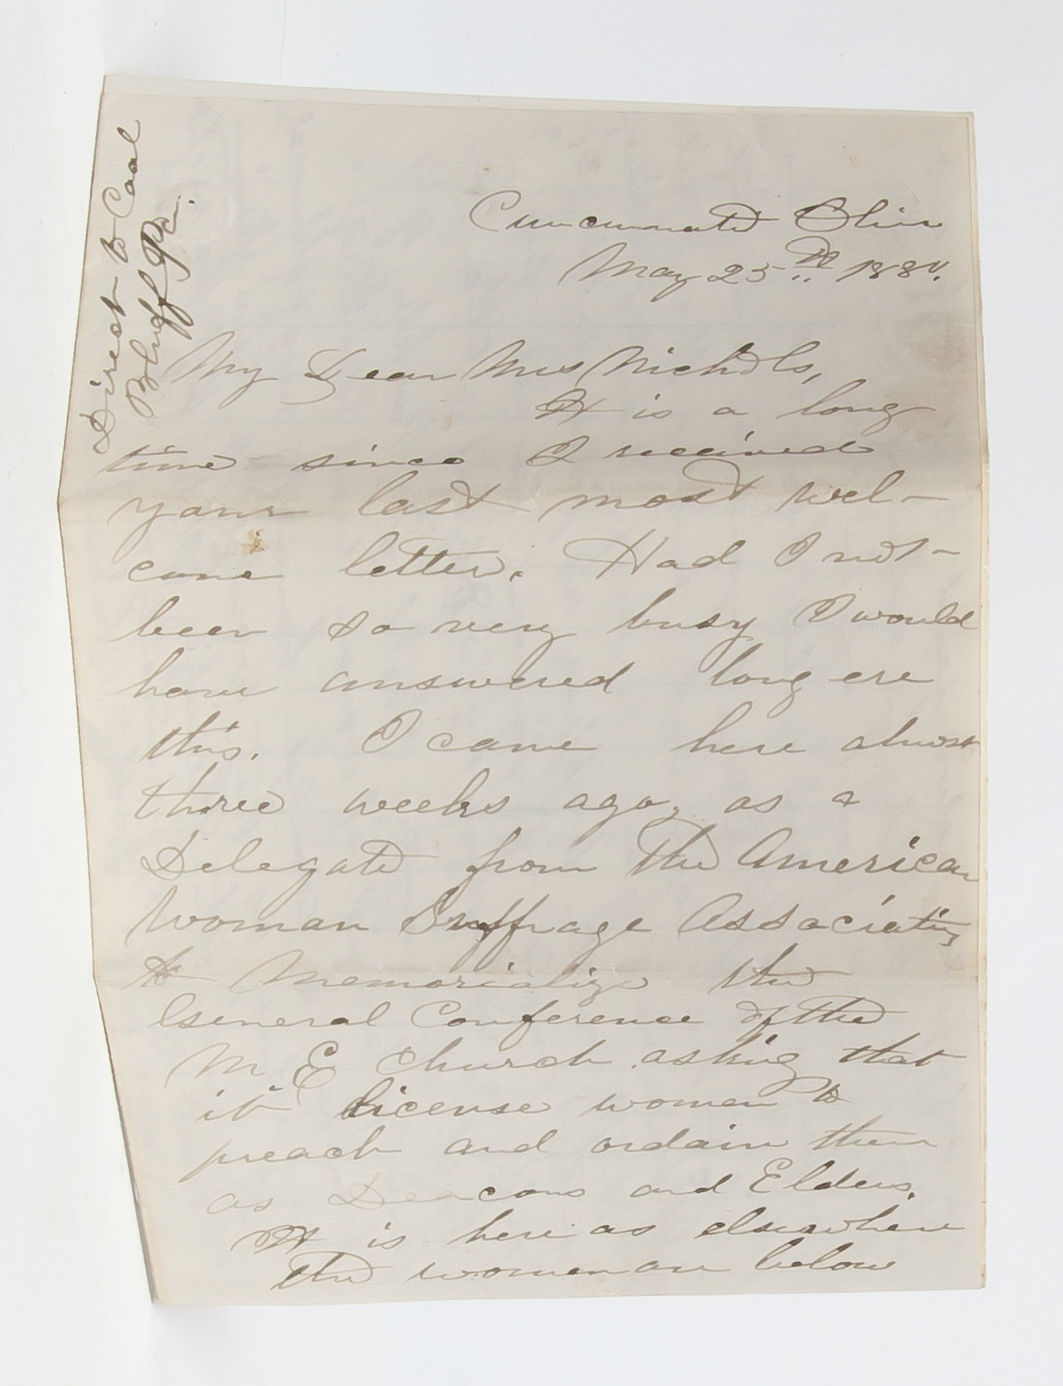 Direct to Coal
Bluff Pa.
Cincinnati Ohio
May 25th 1880.
My Dear Mrs Nichols,
It is a long
time since I received
your last most wel-
come letter. Had I not
been so very busy I would
have answered long ere
this. I came here almost
three weeks ago, as a
Delegate from the American
Woman Suffrage Association,
to Memorialize the
General Conference of the
M E Church asking that
it license women to
preach and ordain them
as Deacons and Elders.
It is here as elsewhere
the women are below